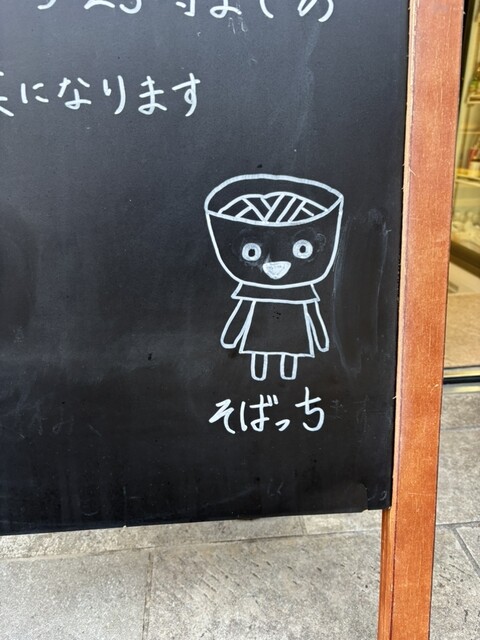 23時までの
になります
そばっち